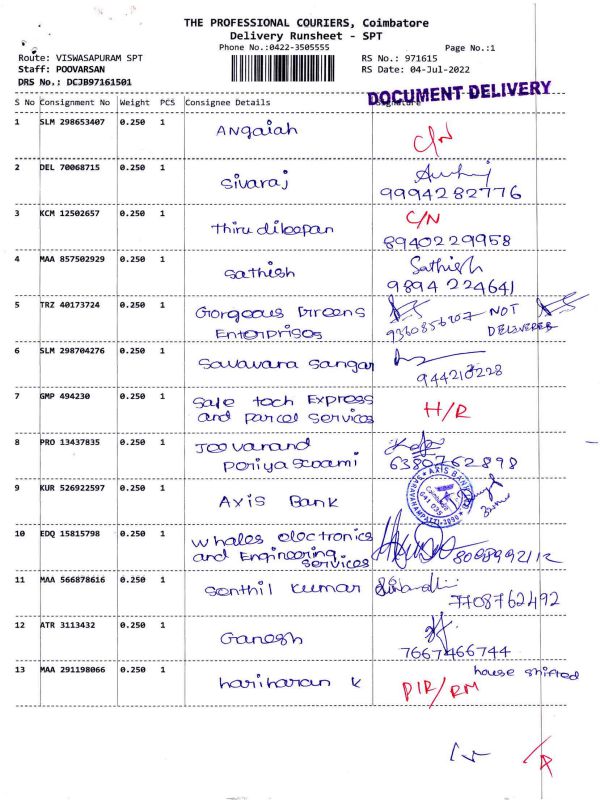 THE PROFESSIONAL COURIERS, Coimbatore
Delivery Runsheet - SPT
Phone No.:0422-3505555
Page No.:1
Route: VISWASAPURAM SPT
RS No.: 971615
Staff: POOVARSAN
RS Date: 04-Jul-2022
DRS No.: DCJB97161501
DOCUMENT DELIVERY
S No Consignment No Weight PCS Consignee Details
1 SLM 298653407 0.250 1 Angaiah C/N
2 DEL 70068715 0.250 1 Sivaraj
9994282776
3 KCM 12502657 0.250 1 Thiru dileepan C/N
8940229958
4 MAA 857502929 0.250 1 Sathish Sathish
9894 224641
5 TRZ 40173724 0.250 1 Gorgeous Greens NOT
Enterprises DELIVERED
6 SLM 298704276 0.250 1 Savavara Sangar
7 GMP 494230 0.250 1 Safe tech Express H/R
and parcel services
8 PRO 13437835 0.250 1 Jeevanand
periyaswami 6380762898
9 KUR 526922597 0.250 1 Axis Bank
AXIS BANK
10 EDQ 15815798 0.250 1 Whales electronics
and Engineering
services
11 MAA 566878616 0.250 1 Senthil kumar
7708762492
12 ATR 3113432 0.250 1 Ganesh
7667466744
13 MAA 291198066 0.250 1 hariharan k house shifted
PIR/RM